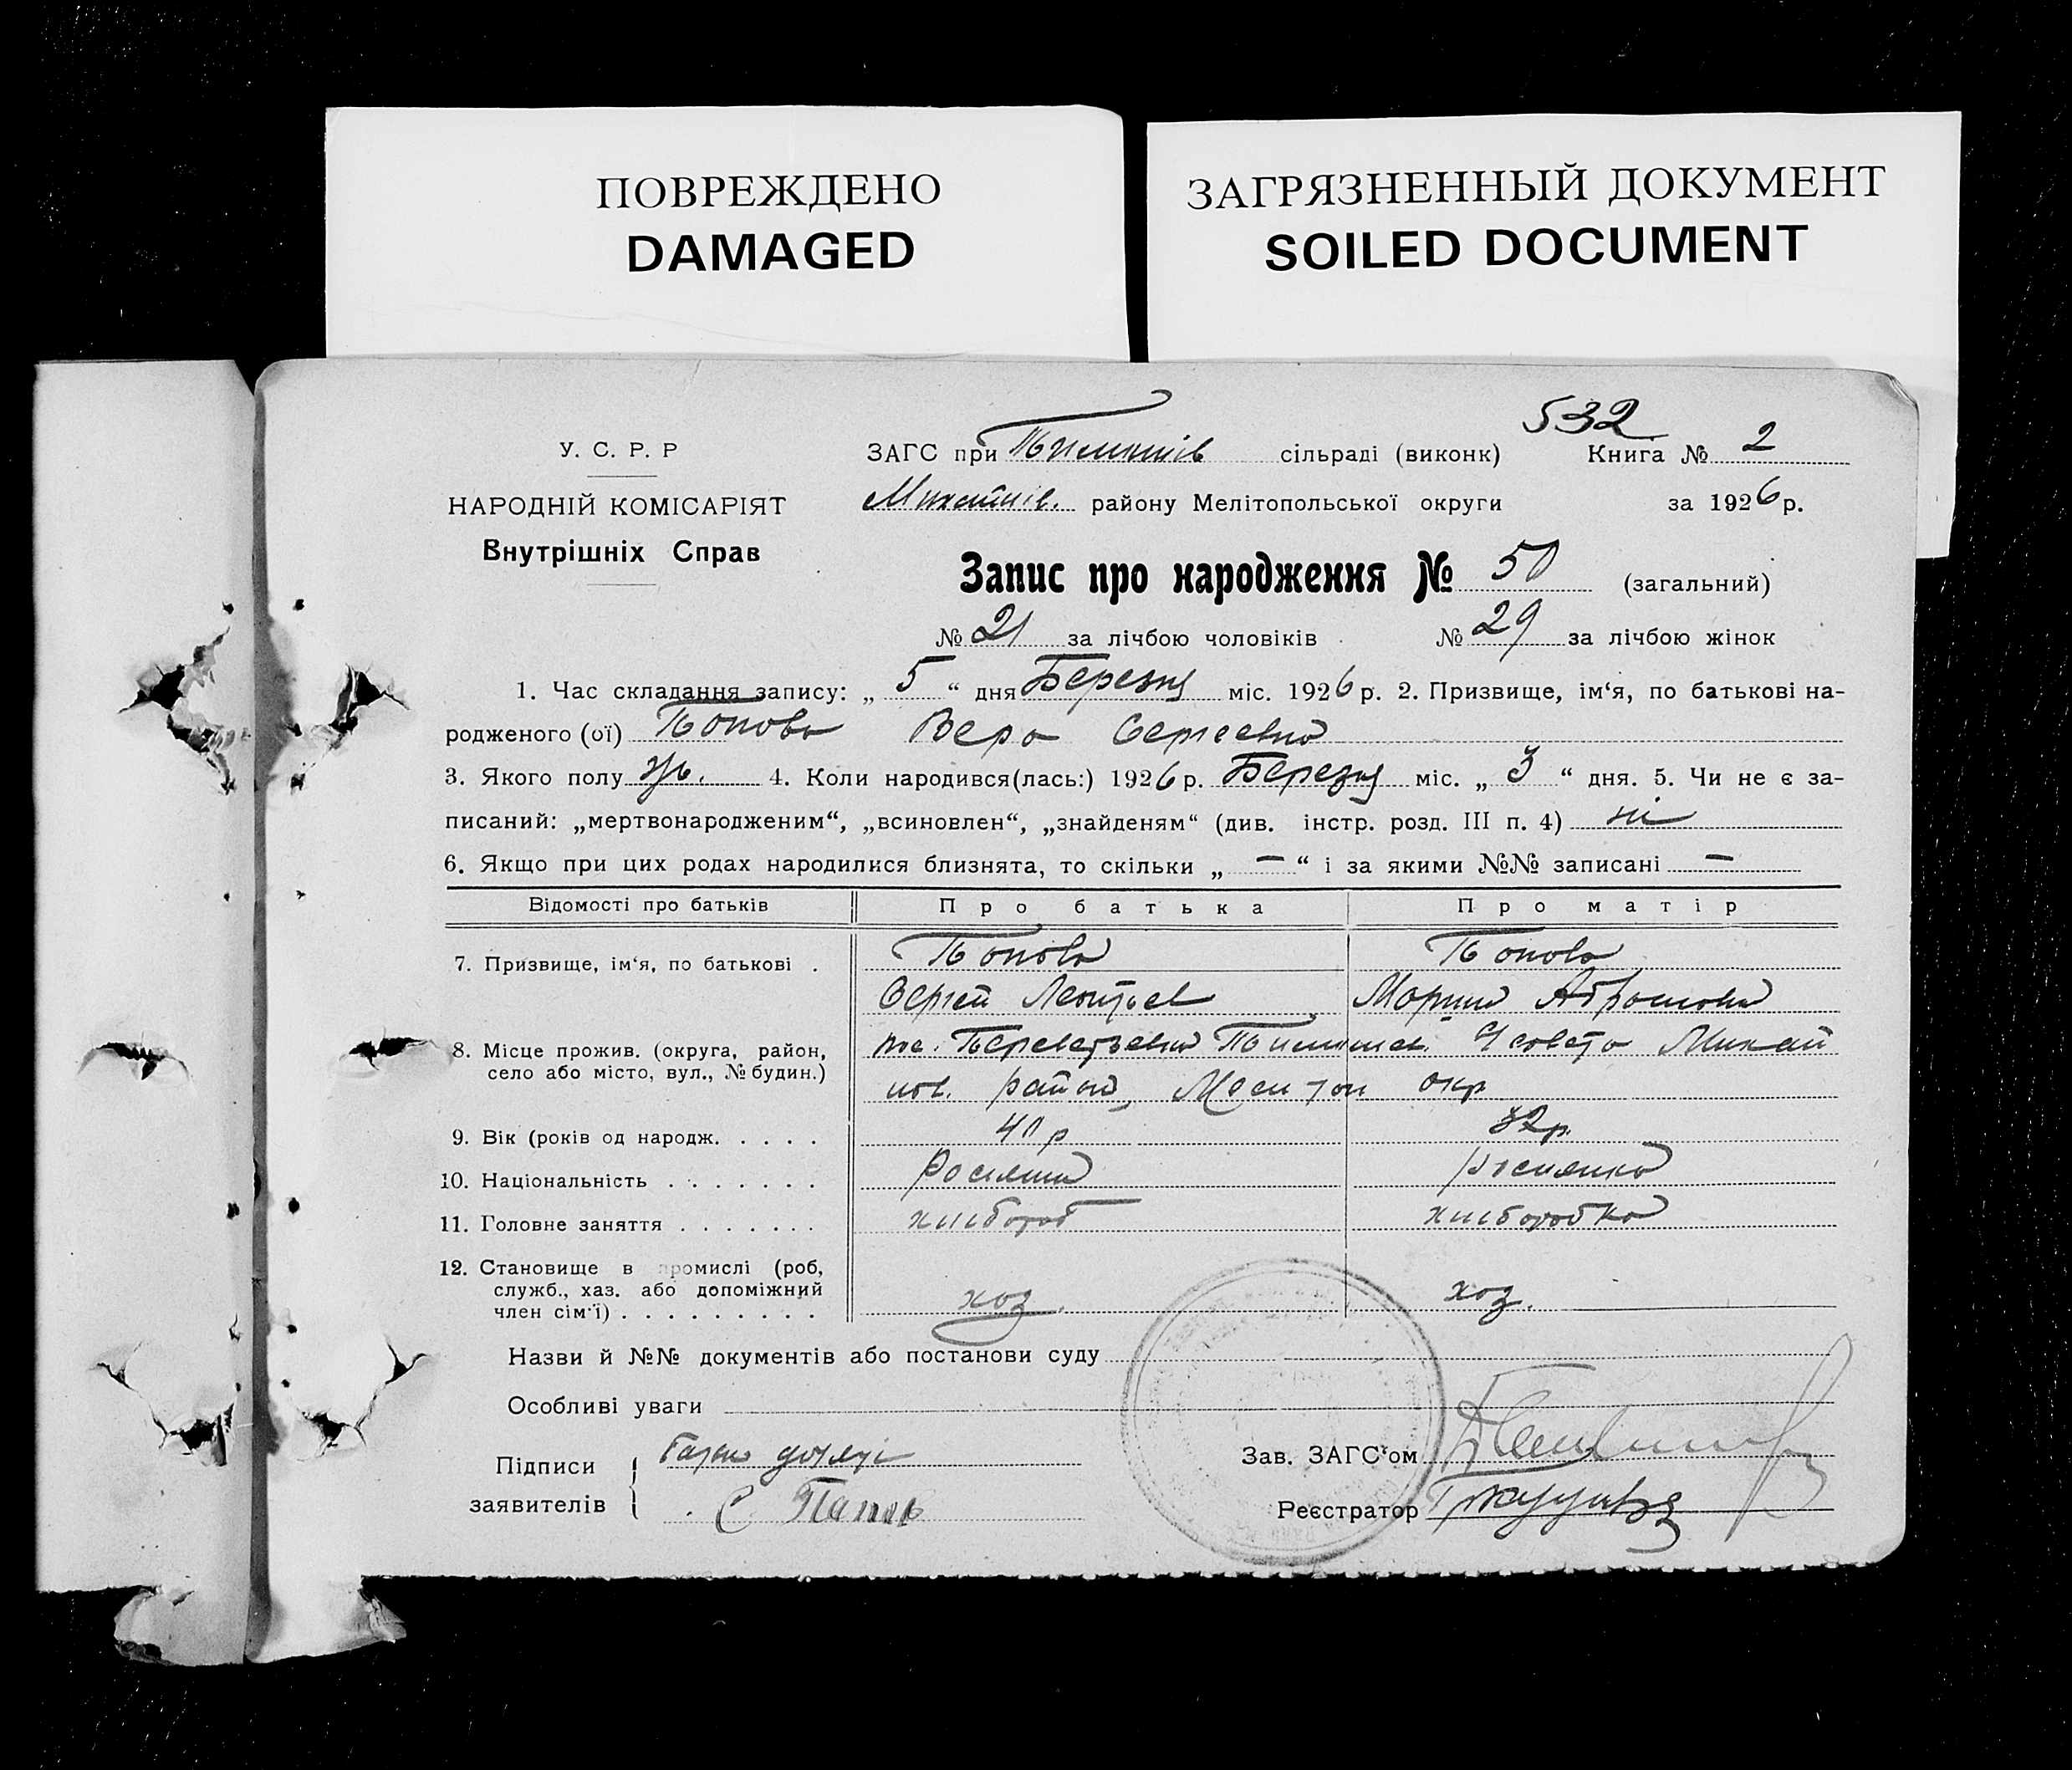 ПОВРЕЖДЕНО
DAMAGED
ЗАГРЯЗНЕННЫЙ ДОКУМЕНТ
SOILED DOCUMENT
532
У. С. Р. Р
НАРОДНІЙ КОМІСАРІЯТ
Внутрішніх Справ
ЗАГС при сільраді (виконк) Книга № 2
району Мелітопольської округи за 1926 р.
Запис про народження № 50 (загальний)
№ 21 за лічбою чоловіків № 29 за лічбою жінок
1. Час складання запису: „ 5 “ дня Березня міс. 1926 р. 2. Призвище, ім‘я, по батькові на-
родженого (ої) Попова Вера Сергеевна
3. Якого полу ж. 4. Коли народився(лась:) 1926 р. Березня міс. „ 3 “ дня. 5. Чи не є за-
писаний: „мертвонародженим“, „всиновлен“, „знайденям“ (див. інстр. розд. III п. 4) ні
6. Якщо при цих родах народилися близнята, то скільки „ — “ і за якими №№ записані —
Відомості про батьків Про батька Про матір
7. Призвище, ім‘я, по батькові . Попов Попова
Сергей Леонтьев Мария Абрамовна
8. Місце прожив. (округа, район,
село або місто, вул., № будин.)
район, окр
9. Вік (років од народж. . . . . 40 р 32 р.
10. Національність . . . . . . . Росиянин Росиянка
11. Головне заняття . . . . . . . хлібороб хліборобка
12. Становище в промислі (роб,
служб., хаз. або допоміжний
член сім‘ї) . . . . . . . . . хоз. хоз.
Назви й №№ документів або постанови суду
Особливі уваги
Підписи
заявителів С Попов
Зав. ЗАГС‘ом
Реєстратор